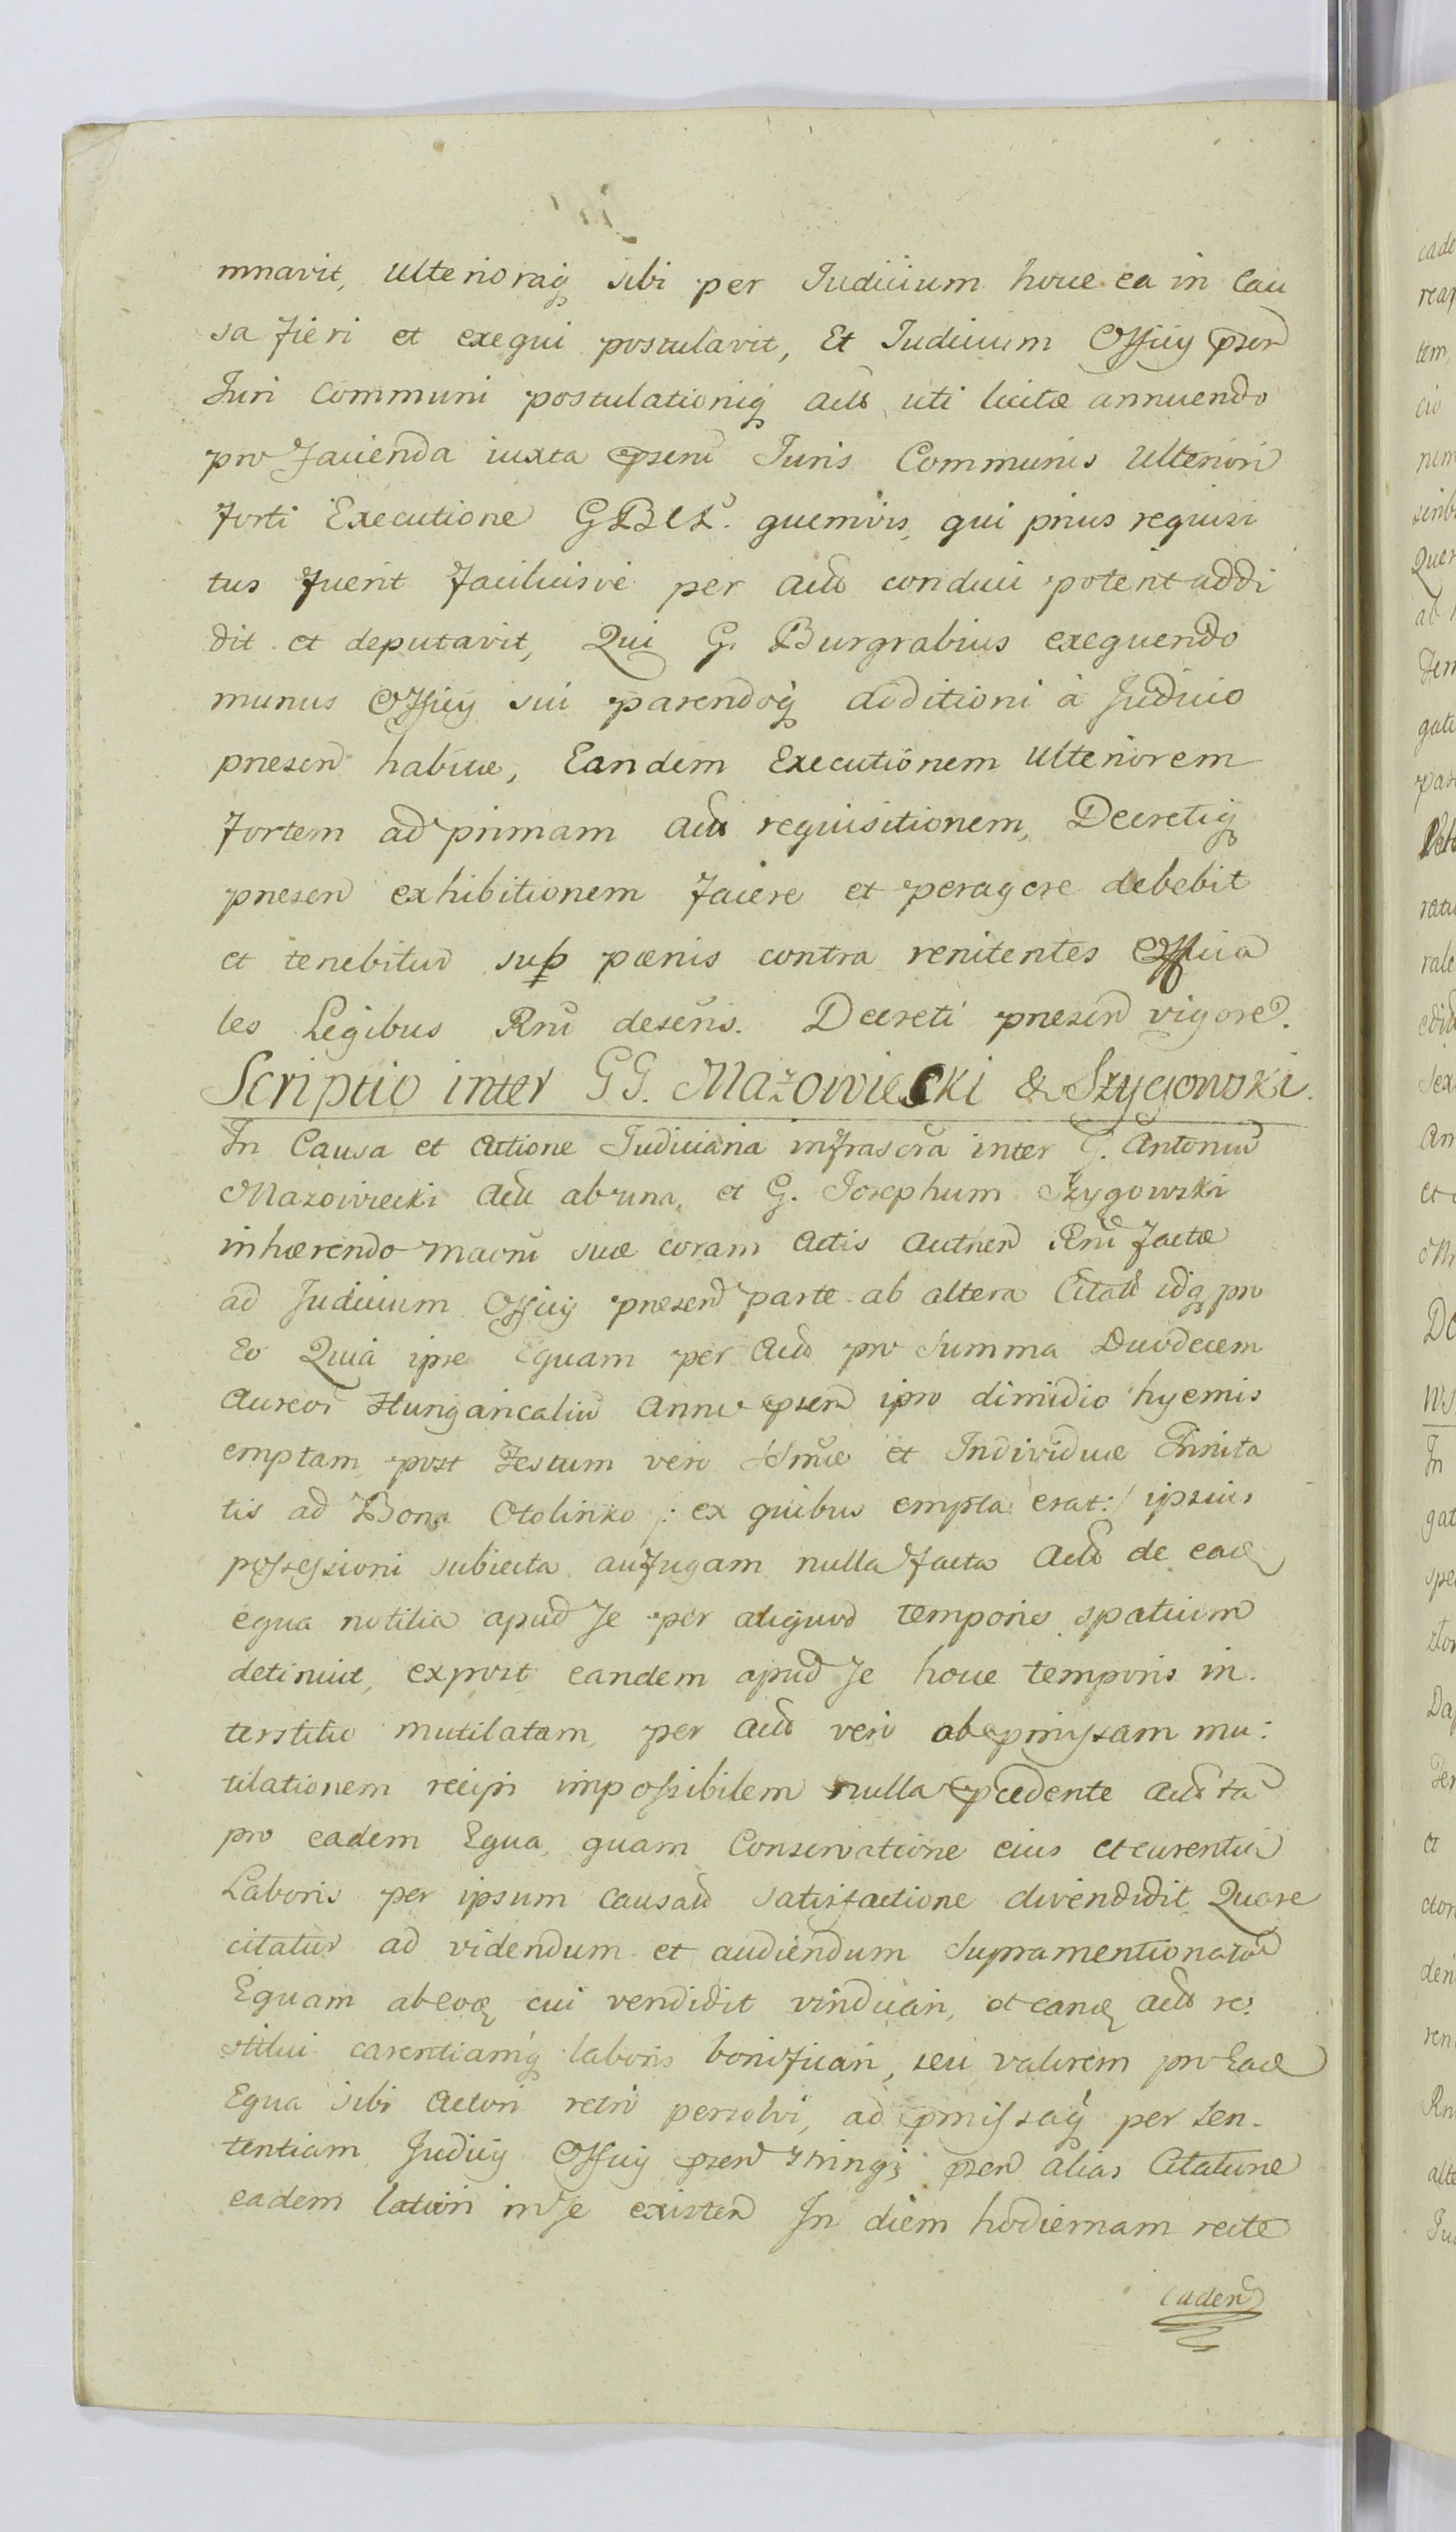 mnavit, ulterioraq sibi per Judicium hocce ea in Cau
sa fieri et exequi postulavit, Et Judicium Officij pren
Juri Communi postulationiq Acto uti licitæ annuendo
pro facienda iuxta prseni Juris Communis Ulteriori
forti Executione GBCL. quemvis, qui prius requisi
tus fuerit faciliusve per Acto conduci poterit addi
dit et deputavit, Qui G. Burgrabius exequendo
munus Officij sui parendoq additioni à Judicio
præsen habitæ, Eandem Executionem Ulteriorem
fortem ad primam Acti requisitionem, Decretiq
præsen exhibitionem facere et peragere debebit
et tenebitur sup pænis contra renitentes Officia
les Legibus Rni deseris. Decreti præsen vigore.
Scriptio inter GG. Mazowiecki & Szygowski.
In Causa et Actione Judiciaria infrascra inter G. Antoniu
Mazowiecki Act ab una, et G. Josephum Szygowski
inhærendo maoni suæ coram Actis Authen Rni factæ
ad Judicium Officij præsen parte ab altera Citato idq pro
Eo Quia ipse Equam per Acto pro Summa Duodecem
Aureor Hungaricaliu Anno prsen ipso dimidio hyemis
emptam post Festum vero Ssmæ et Individuæ Trinita
tis ad Bona Otolinko /: ex quibus empta erat :/ ipsius
possessioni subiecta aufugam nulla facta Acto de eade
equa notitia apud se per aliquod temporis spatium
detinuit, expost eandem apud se hocce temporis in.
terstitio mutilatam, per Acto vero ob pmissam mu:
tilationem recipi impossibilem nulla pcedente Acto ta
pro eadem Equa, quam Conservatione eius et curentia
Laboris per ipsum causata satisfactione divendidit Quare
citatur ad videndum et audiendum Supramentionata
Equam ab eoq cui vendidit vindicari, et eanq acto re:
stitui carentiamq laboris bonificari, seu valorem pro Eade
Equa sibi Actori retro persolvi, ad pmissaq per sen-
tentiam Judicij Officij prsen stringi prsen alias Citatione
eadem latiori in se existen In diem hodiernam recte
caden